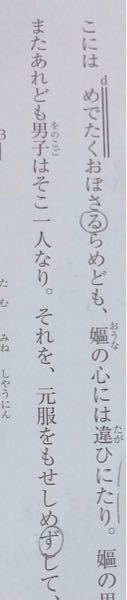 こには めでたくおぼさるらめども、嫗の心には違ひにたり。嫗の
d
おうな
たが
またあれども男子はそこ一人なり。それを、元服をもせしめずして、
をのこご
3
たむ みね しやうにん